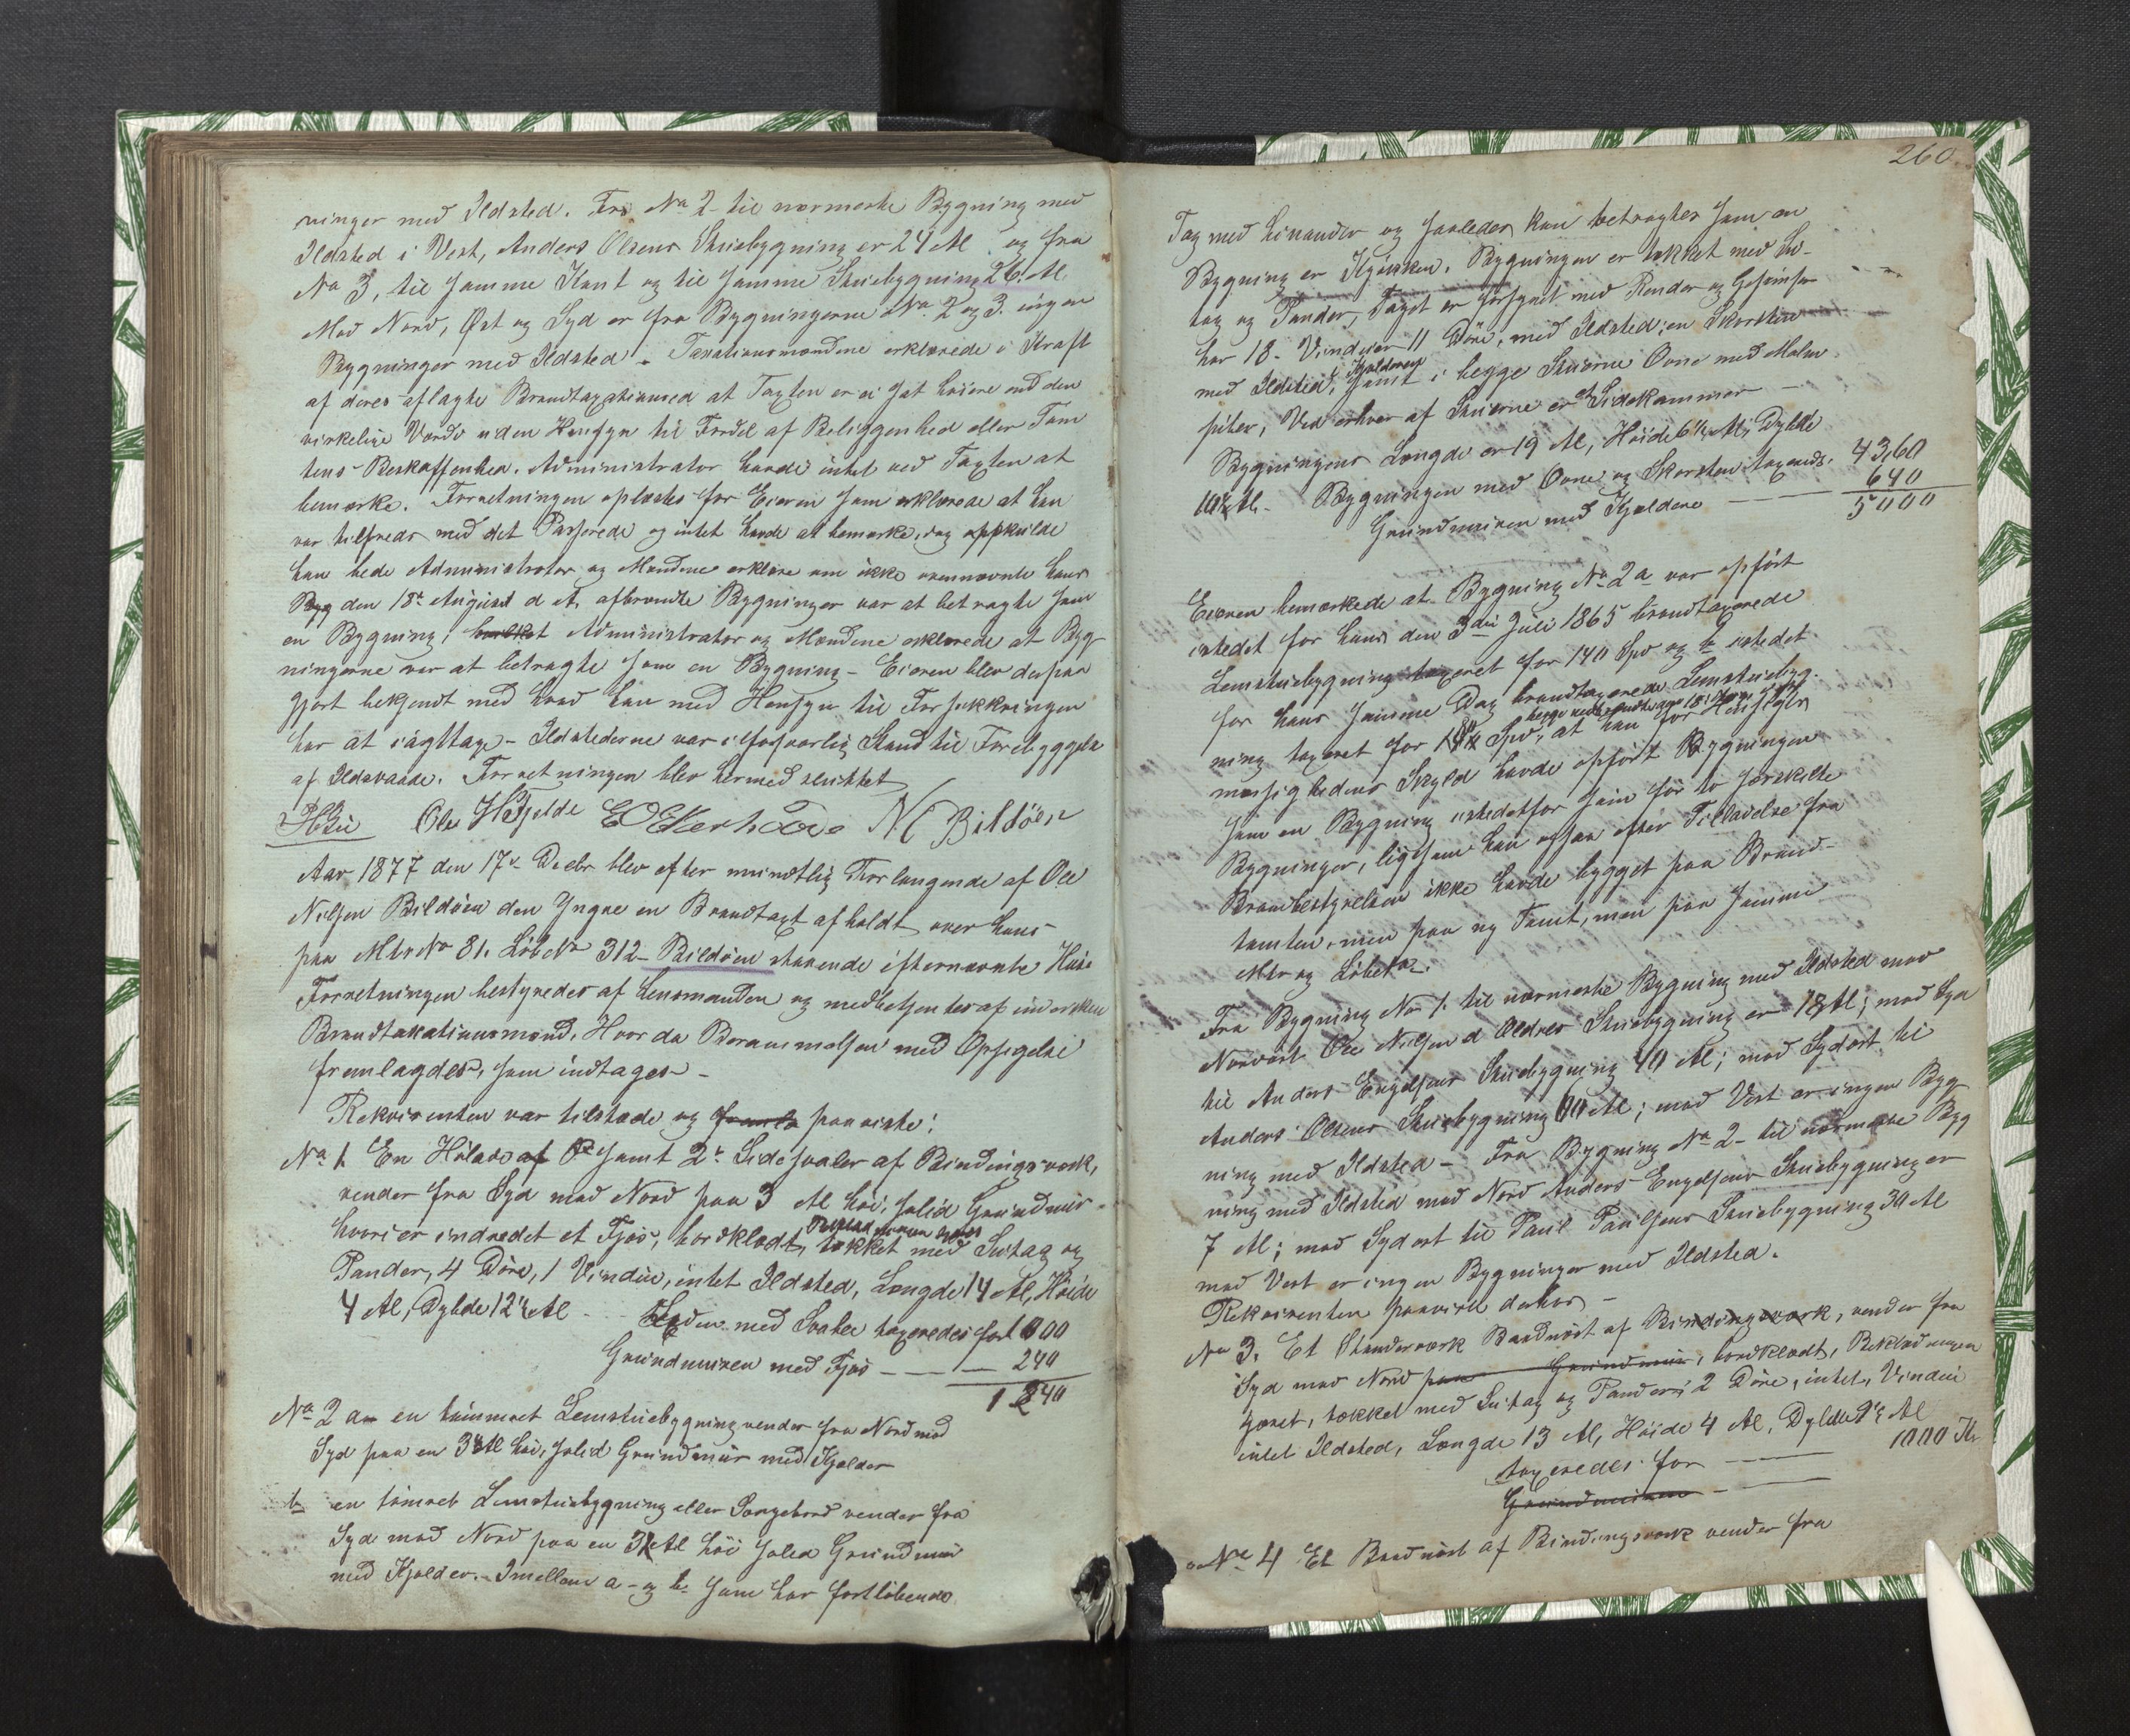 ninger med Ildsted. Fra No 2 til nærmeste Bygning med
Ildsted i Vest, Anders Olsens Stuebygning er 24 Al og fra
No 3, til samme Kant og til samme Stuebygning 26 Al.
Mod Nord, Øst og Syd er fra Bygningerne No 2 og 3. ingen
Bygninger med Ildsted. Taxationsmændene erklærede i Kraft
af deres aflagte Brandtaxationsed at Taxten er ei sat høiere end den
virkelige Værdi uden Hensyn til Fordel af Beliggenhed eller Tom
tens Beskaffenhed. Administrator havde intet ved Taxten at
bemærke. Forretningen oplæstes for Eieren som erklærede at han
var tilfreds med det Passerede og intet havde at bemærke, dog
han bede Administrator og Mændene erklære om ikke ovennævnte hans
Byg den 18de August d A. afbrændte Bygninger var at betragte som
en Bygning, hvilket Administrator og Mændene erklærede at Byg
ningerne var at betragte som en Bygning - Eieren blev derpaa
gjort bekjendt med hvad han med Hensyn til Forsikkringen
har at iagttage - Ildstederne var i forsvarlig Stand til Forebyggelse
af Ildsvaade. Forretningen blev hermed sluttet
Ole N Bildøen
Aar 1877 den 17de Decbr blev efter mundtlig Forlangende af Ole
Nilsen Bildøen den Yngre en Brandtaxt afholdt over hans
paa Mtr No 81. Løb No 312 - Bildøen staaende efternævnte Huse
Forretningen bestyredes af Lensmanden og medbetjentes af
Brandtaxationsmænd, Hvorda Berammelsen med Opsigelse
fremlagdes, som indtages -
Rekvirenten var tilstede og fremla paaviste:
No 1. En Hølade af samt 2de Sidesvaler af Bindingsværk,
vender fra Syd mod Nord paa 3 Al høi, solid Grundmur
hvori er indredet et Fjøs, bordklædt, tækket med Sutag og
Pander, 4 Døre, 1 Vindue, intet Ildsted, Længde 14 Al, Høide
4 Al, Dybde 12½ Al - Laden med Svaler taxeredes for 1000
Grundmuren med Fjøs - - - 240
1240
No 2 a en tømmeret Lemstuebygning vender fra Nord mod
Syd paa en 3½ Al høi, solid Grundmur med Kjelder
b en tømret Lemstuebygning eller vender fra
Syd mod Nord paa en 3½ Al høi solid Grundmur
med Kjelder. Imellem a - og b som har fortløbende
260
Tag med hinanden og saaledes kan betragtes som en
Bygning er Kjøkken. Bygningen er tækket med Su-
tag og Pander, Taget er forsynet med Render og Gesimser
har 18 Vinduer 11 Døre, med Ildsted; en Skorsten
med Ildsted i Kjelderen samt i begge Stuerne Ovne med Malm
piber, Ved enhver af Stuerne er et Sidekammer -
Bygningens Længde er 19 Al, Høide 6½ Al, Dybde
10½ Al. Bygningen med Ovne og Skorsten taxeredes. 4360
Grundmuren med Kjeldere - - 640
5000
Eieren bemærkede at Bygning No 2 a var opført
istedet for hans den 3die Juli 1865 brandtaxerede
Lemstuebygning taxeret for 140 Spd og b istedet
for hans samme Dag brandtaxerede Lemstuebyg-
ning taxeret for Spd, at han for Hensigts
mæssighedens Skyld havde opført Bygningen
som en Bygning istedetfor som før to særskilte
Bygninger, ligesom han ogsaa efter Tilladelse fra
Brandbestyrelsen ikke havde bygget paa Brand-
tomten, men paa ny Tomt, men paa samme
Mtr og Løbe No.
Fra Bygning No 1. til nærmeste Bygning med Ildsted mod
Nordvest Ole Nilsen d Ældres Stuebygning er 18 Al; mod Syd
til Anders Engelsens Stuebygning 40 Al; mod Sydøst til
Anders Olsens Stuebygning 60 Al; mod Vest er ingen Byg
ning med Ildsted - Fra Bygning No 2 - til nærmeste Byg
ning med Ildsted mod Nord Anders Engelsens Stuebygning er
7 Al; mod Sydost til Paul Paulsens Stuebygning 30 Al
mod Vest er ingen Bygninger med Ildsted.
Rekvirenten paaviste derhos -
No 3. Et Stenderværk Baadnøst af Bindingsværk, vender fra
Syd mod Nord paa Grundmur, bordklædt, Beklædningen
tjæret, tækket med Sutag og Pander, 2 Døre, intet Vindue
intet Ildsted, Længde 13 Al, Høide 4 Al, Dybde 9½ Al
taxeredes for - 1000 Kr
Grundmuren -
No 4 Et Baadnøst af Bindingsværk vender fra